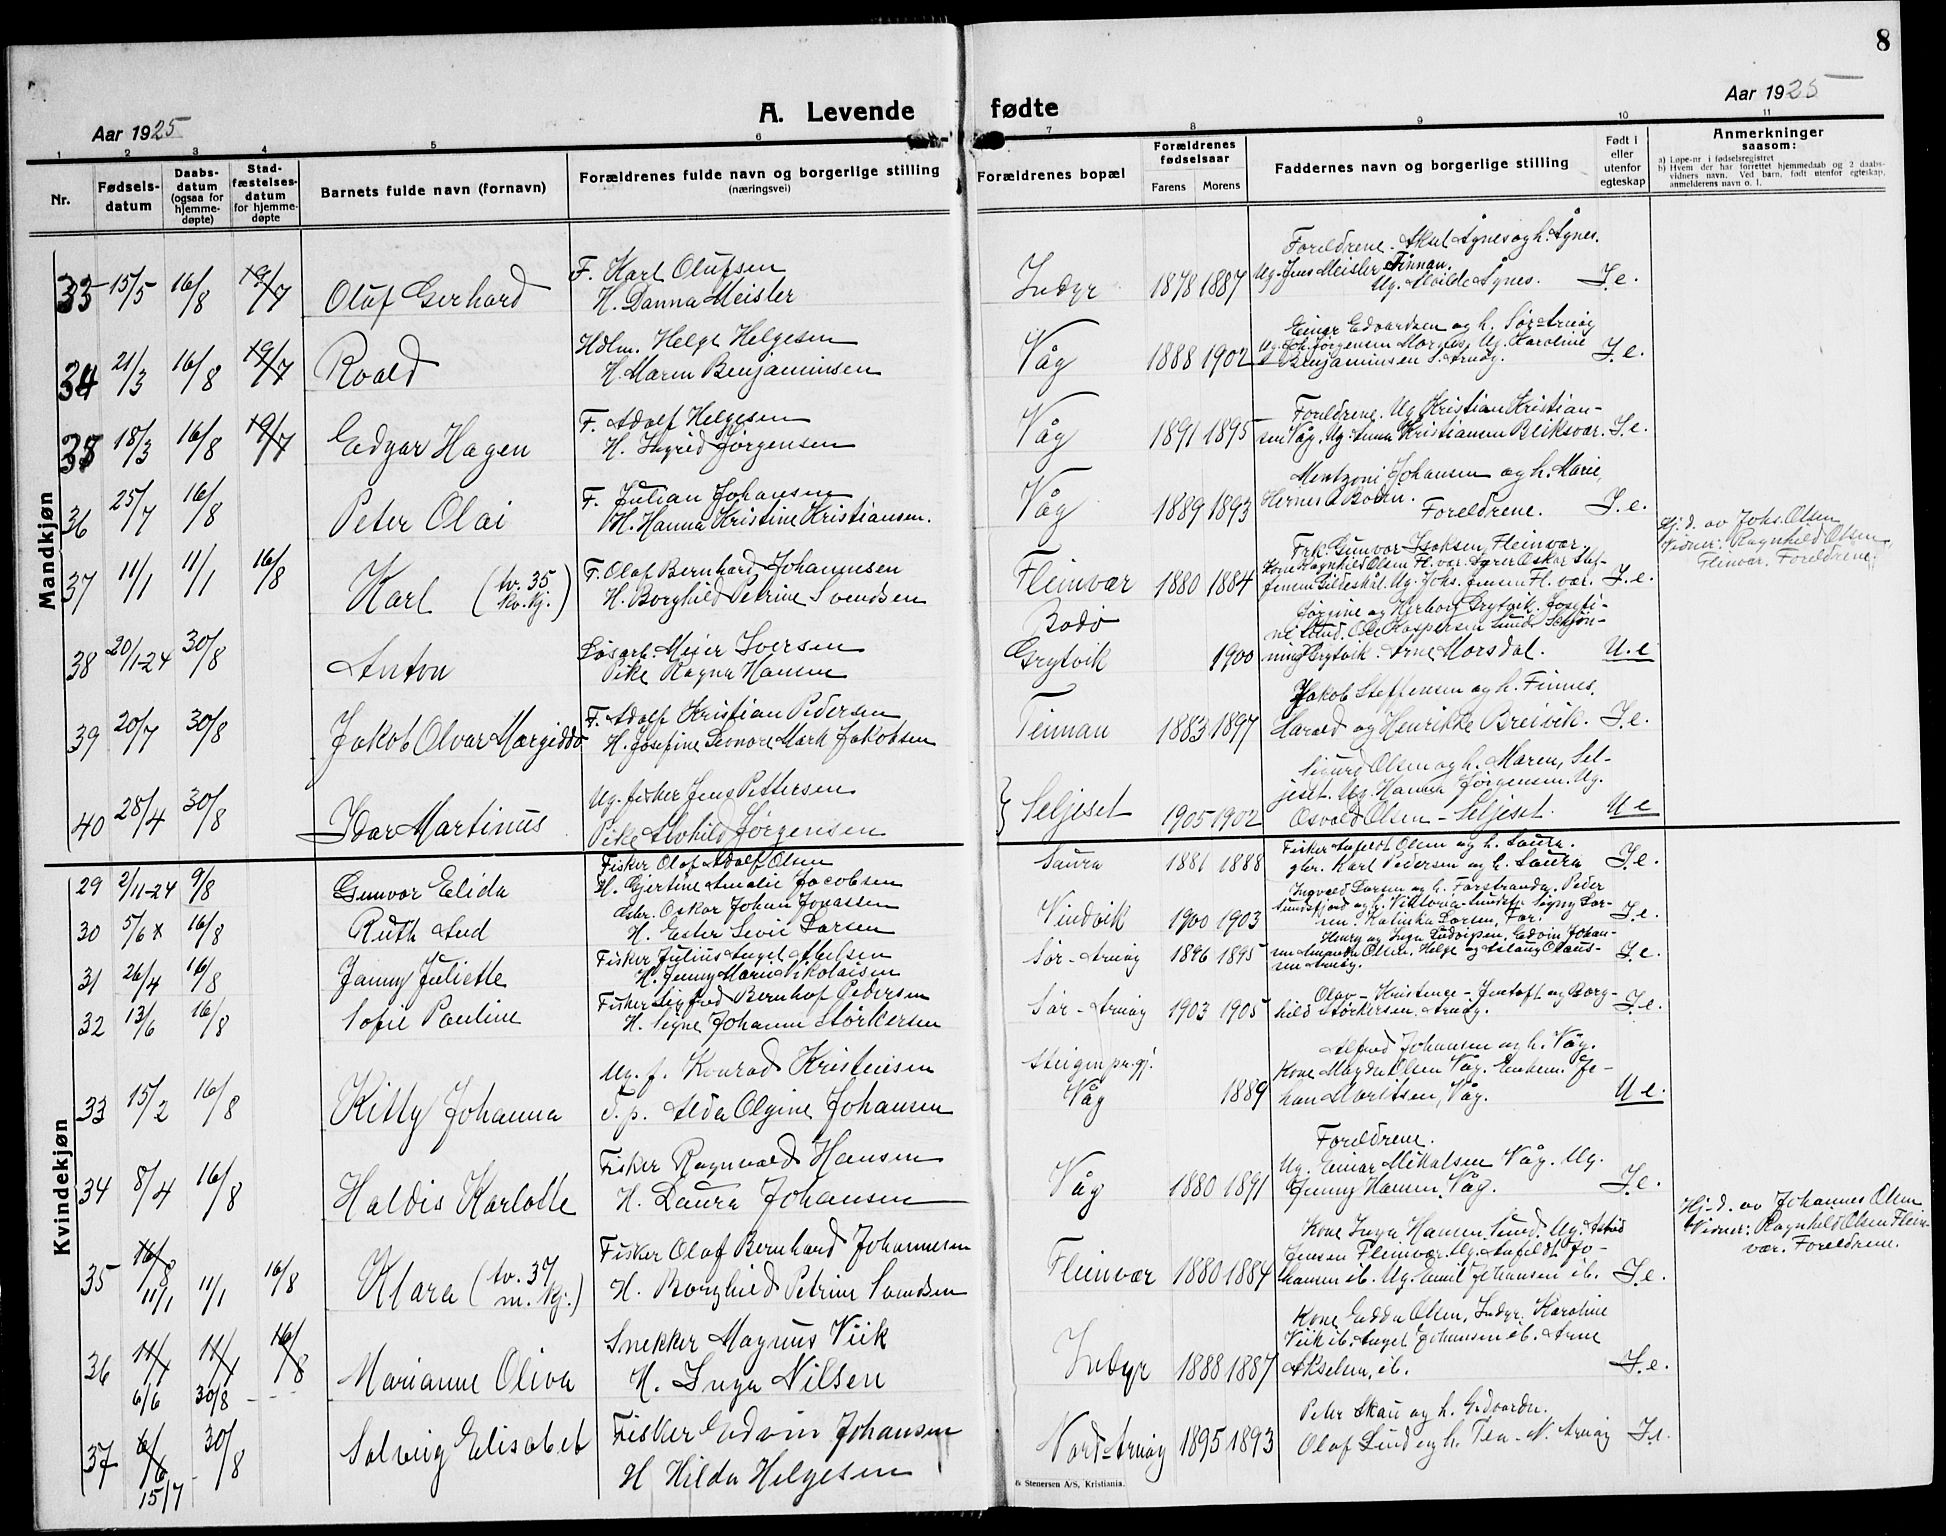 8
Aar 1925
A. Levende fødte
Aar 1925
1 2 3 4 5 6 7 8 9 10 11
Nr.
Fødsels-datum
Daabs-datum (ogsaa for hjemme-døpte)
Stad-fæstelses-datum for hjemme-døpte
Barnets fulde navn (fornavn)
Forældrenes fulde navn og borgerlige stilling
(næringsvei)
Forældrenes bopæl
Forældrenes fødselsaar
Farens Morens
Faddernes navn og borgerlige stilling
Født i eller utenfor egteskap
Anmerkninger
saasom:
a) Løpe-nr i fødselsregistret
b) Hvem der har forrettet hjemmedaab og 2 daabs-
vidners navn. Ved barn, født utenfor egteskap,
anmelderens navn o. l.
Mandkjøn
33 15/5 16/8 19/7 Olaf Gerhard
F. Karl Olufsen
H. Danna Meisler
Indyr 1878 1887
Foreldrene. Aksel Agnes og h. Ågnes.
Ug. Jens Meisler Finnan.
Ug. Møilde Ågnes. I.e.
34 21/3 16/8 19/7 Roald
Hdlm. Helge Helgesen
H. Maren Benjaminsen
Våg 1888 1902
Einar Edvardsen og h. Sør-Arnøy
Ug. Joh. Jørgensen Ug. Karoline
Benjaminsen S. Arnøy. I.e.
35 18/3 16/8 19/7 Edgar Hagen
F. Adolf Helgesen
H. Ingrid Jørgensen
Våg 1891 1895
Foreldrene. Ug. Kristian Kristian-
sen Våg. Ug. Anna Kristiansen Bliksvær. I.e.
36 25/7 16/8 Peter Olai
F. Julian Johansen
H. Hanna Kristine Kristiansen.
Våg 1889 1893
Mentzoni Johansen og h. Marie,
Hernes Bodin.
Foreldrene. I.e.
37 11/1 11/1 16/8 Karl (tv. 35 kv. kj.)
F. Olaf Bernhard Johannesen
H. Borghild Petrine Svendsen
Fleinvær 1880 1884
Frk. Gunvor Isaksen, Fleinvær,
Kone Ragnhild Olsen Fl.vær. Lærer Oskar Stef-
fensen Gildeskål. Ug. Johs. Jensen Fl.vær. I.e.
Hj. d. av Johs. Olsen
Vidner: Ragnhild Olsen,
Fleinvær. Foreldrene.
38 20/1-24 30/8 Anton
Løsarb. Meier Iversen
Pike Ragna Hansen
Bodø
Grytvik 1900
Jørgine og Herborg Grytvik. Josefi-
ne Lund. Ole Kaspersen Sund. Schjøn-
ning Grytvik. Arne Morsdal. U.e
39 20/7 30/8 Jakob Olvar Margiddo
F. Adolf Kristian Pedersen
H. Josefine Leonore Mark Jakobsen
Teinnan 1883 1897
Jakob Steffensen og h. Finnes.
Harald og Henrikke Breivik. I.e.
40 28/4 30/8 Idar Martinus
Ug. fisker Jens Pettersen
Pike Alvhild Jørgensen
Seljeset 1905 1902
Sigurd Olsen og h. Maren, Sel-
jeset. Ug. Hanna Jørgensen. Ug.
Osvald Olsen - Seljeset. U e
Kvindekjøn
29 2/11-24 9/8 Gunvor Elida
Fisker Olaf Adolf Olsen
H. Gjertine Amalie Jacobsen
Saura 1881 1888
Fisker Anfeldt Olsen og h. Saura.
gbr. Karl Pedersen og h. Saura I.e.
30 5/6 x 16/8 Ruth Aud
Oskar Johan Jonassen
H. Ester Sevie Larsen
Vindvik 1900 1903
Ingvald Larsen og h. Forstranda, Peder
Sundsfjord og h. Viktoria Sundsfj. Signy Lar-
sen. Katinka Larsen, Før. I.e.
31 26/4 16/8 Janny Juliette
Fisker Julius Angel Abelsen
H. Jenny Marie Nikolaisen
Sør-Arnøy 1896 1895
Henry og Inga Ludvigsen, Edvin Johan-
sen Olsen, Helge og Aslaug Claus-
sen Arnøy. I.e.
32 13/6 16/8 Sofie Pauline
Fisker Sigfred Bernhof Pedersen
H. Signe Johanne Størkersen
Sør-Arnøy 1903 1905
Olav - Kristense - Jentoft og Borg-
hild Størkersen, Arnøy. I.e.
33 15/2 16/8 Kitty Johanna
Ug. f. Konrad Kristensen
T. p. Alda Olgine Johansen
Steigen pr.gj.
Våg 1889
Alfred Johansen og h. Våg.
Kone Magda Olsen Våg. Enkem. Jo-
han Moritsen, Våg. U e.
34 8/4 16/8 Haldis Karlotte
Fisker Ragnvald Hansen
H. Laura Johansen
Våg 1880 1891
Foreldrene.
Ug. Einar Mikalsen Våg. Ug.
Jenny Hansen Våg. I.e.
35 16/8 11/1 11/1 16/8 Klara (tv. 37 m. kj.)
Fisker Olaf Bernhard Johannesen
H. Borghild Petrine Svendsen
Fleinvær 1880 1884
Kone Inga Hansen, Sund. Ug. Astrid
Jensen Fleinvær. Ug. Anfeldt Jo-
hansen ib. Ug. Emil Johansen ib. I.e.
Hj. d. av Johannes Olsen
Vidner: Ragnhild Olsen Flein-
vær. Foreldrene.
36 11/1 11/1 16/8
6/6 30/8 - - - Marianne Oliva
Snekker Magnus Viik
H. Inga Nilsen
Indyr 1888 1887
Kone Edda Olsen, Indyr. Karoline
Viik ib. Angel Johansen ib. Arne
Akselsen, ib. I.e.
37 6/6 15/7 30/8 Solveig Elisabet
Fisker Edvin Johansen
H Hilda Helgesen
Nord-Arnøy 1895 1893
Peter Skau og h. Gedvarda.
Olaf Lind og h. Tea - N. Arnøy I.e.
& Stenersen A/S, Kristiania.